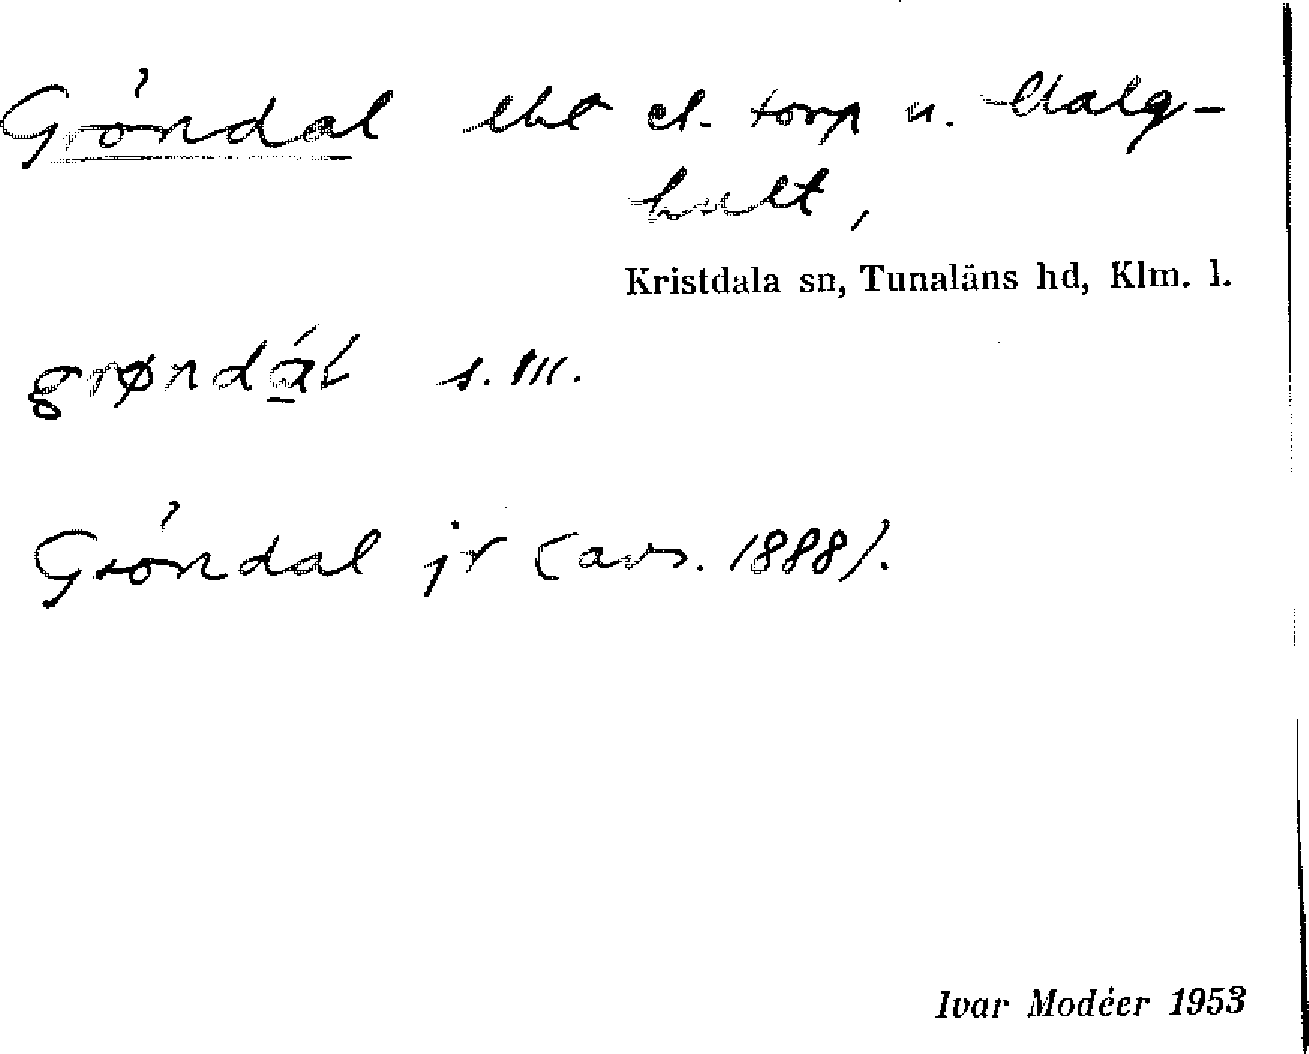 Gröndal lht el. torp u. Malg-
hult,
Kristdala sn, Tunaläns hd, Klm. l.
grøndáĺ s. m.
Gröndal jr (avs. 1888).
Ivar Modéer 1953